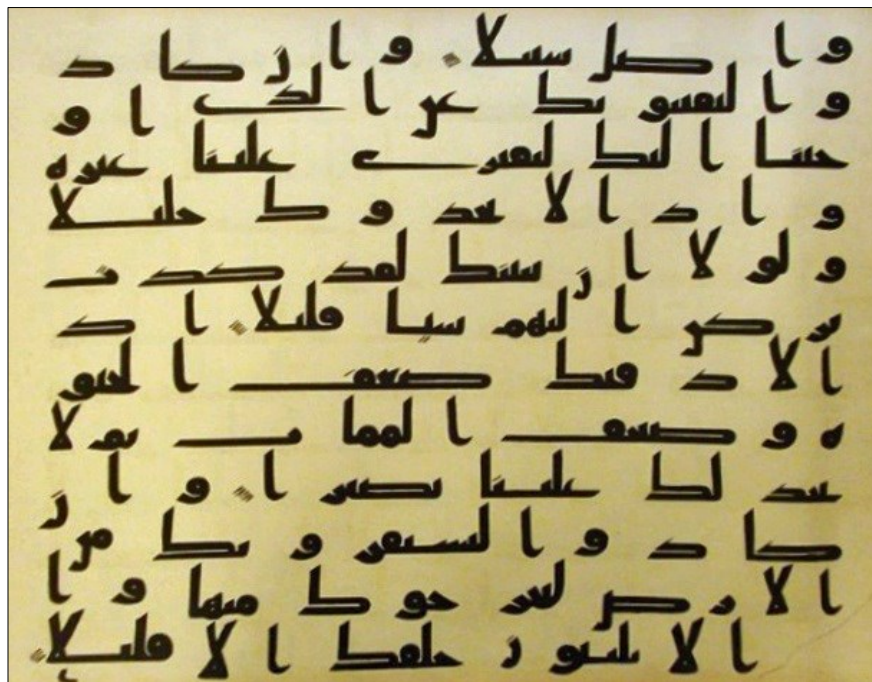 واضل سبيلا وان كاد
وا ليفتنونك عن الذي او
حينا اليك لتفتري علينا غيره
واذا لاتخذوك خليلا
ولولا ان ثبتنك لقد كدت
تركن اليهم شيا قليلا اذ
ا لاذقنك ضعف الحيو
ه وضعف الممات ثم لا
تجد لك علينا نصيرا وان
كادوا ليستفزونك من
الارض ليخرجوك منها وا
ا لا يلبثون خلفك الا قليلا